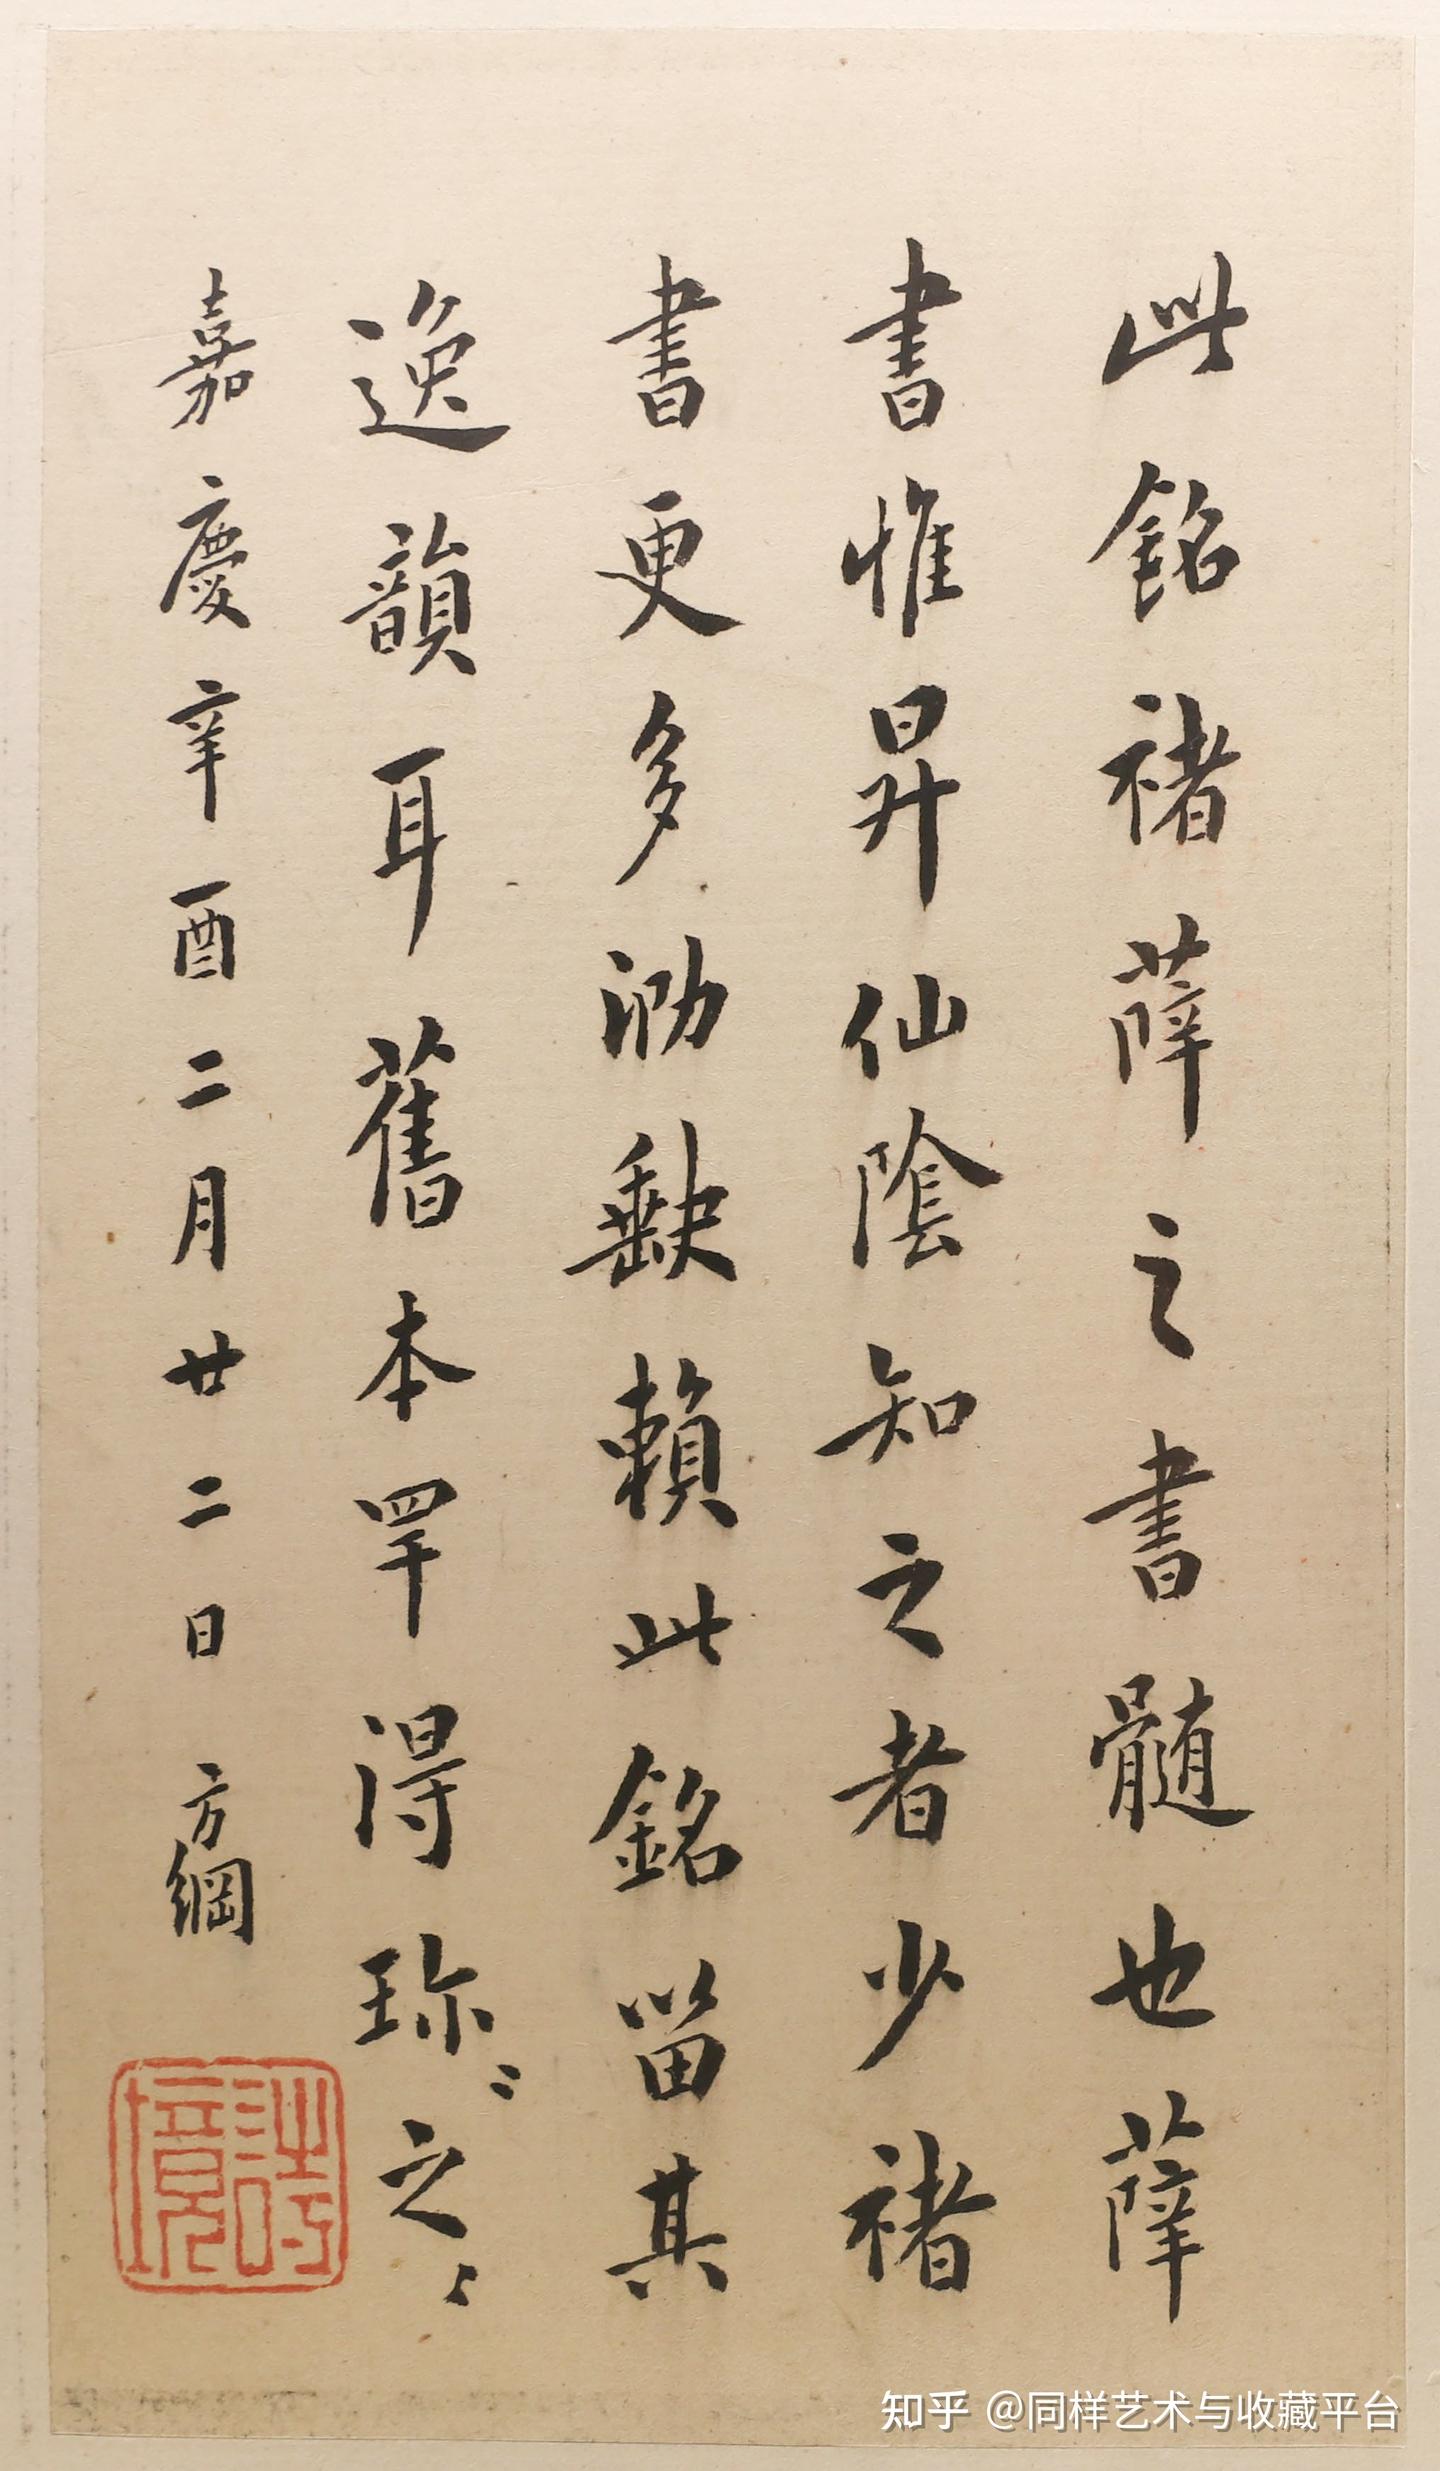 此銘褚薛之書髓也薛
書惟昇仙陰知之者少褚
書更多泐缺賴此銘留其
逸韻耳舊本罕得珎〻之〻
嘉慶辛酉二月廿二日 方綱
詩境
知乎 @同样艺术与收藏平台